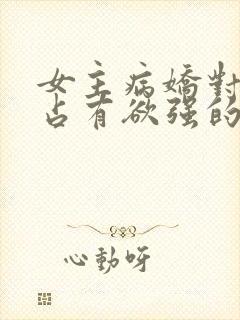 女主病嬌對
占有欲强的
心動呀